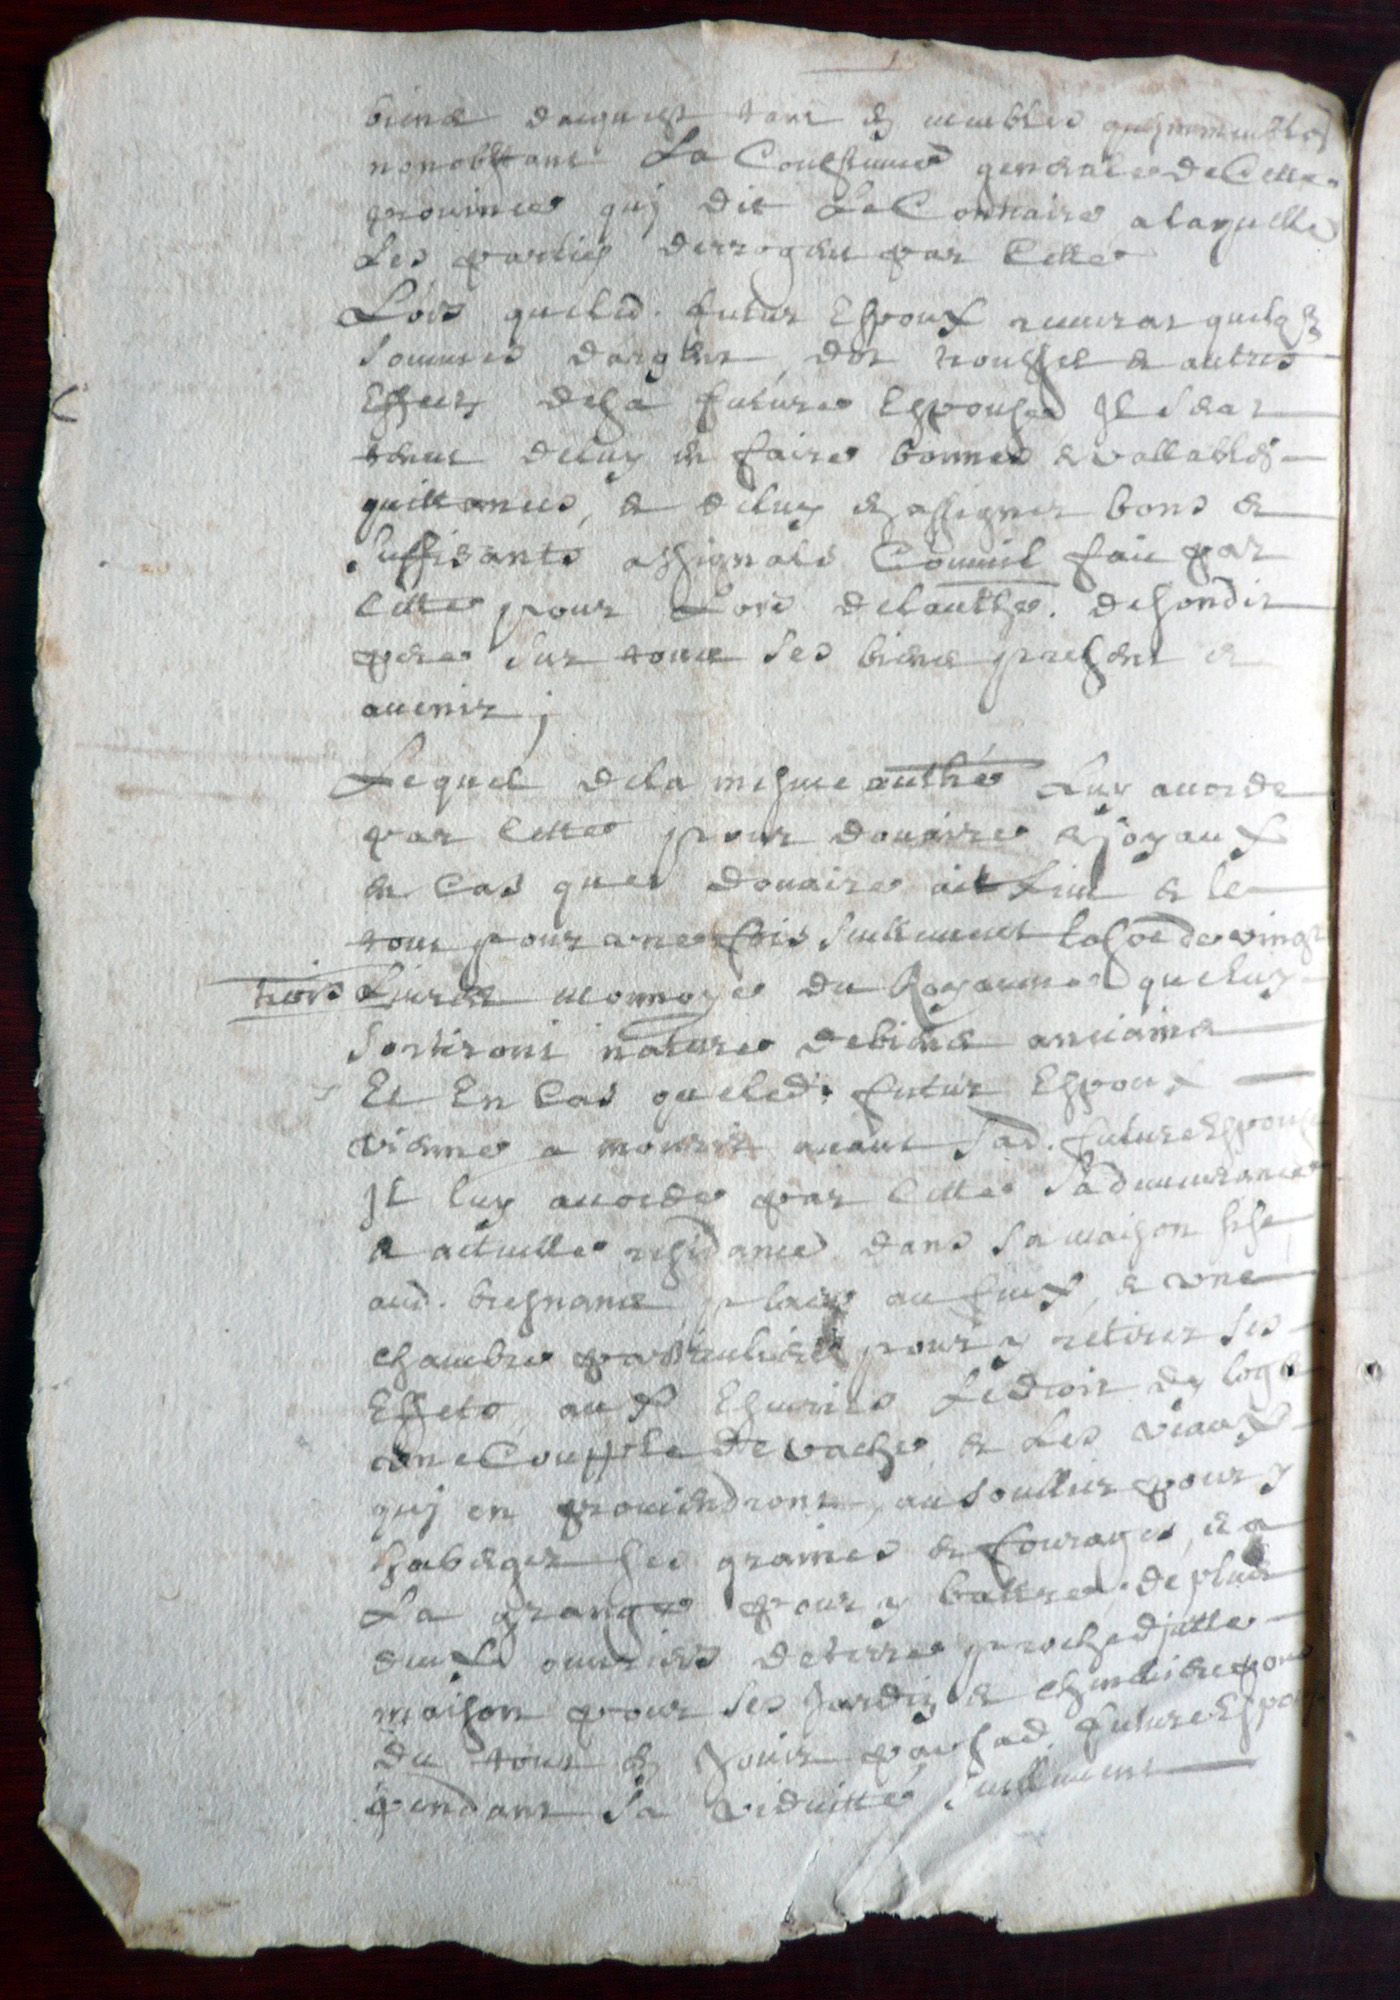 biens dacquest tant en meubles qu'jmmeubles
nonobstant La Coustume generale de Cette
province quj dit Le Contraire a laquelle
Les parties derrogent par Cette
Lors que led. futur Espoux recevrat quelq
sommes dargent, dot troussel & autres
Effects desa future Espouse Jl serat
tenut deluy en faire bonnes & vallables
quittances, & deluy en assigner bons &
suffisants assignals Comme il fait par
Cette pour Lors de lauthe. de sondit
pere sur tous ses biens present &
avenir ;
Lequel de la mesme authé Luy acorde
par Cette pour douaire & joyaux
en Cas que douaire ait Lieu & le
tout pour une fois seullement la soe de vingt
trois Livres monnoye du Royaume que luy
sortiront nature debiens anciains
Et En Cas que led. futur Espoux
vienne a mourir avant sad. future Espouse
Jl luy acorde par Cette sa demeurance
& actuelle residance dans sa maison sise
aud. bresnans, place au feux, & une
chambre particuliere pour y retirer ses
Effets, aux Escuries Le droit dy loger
une Coupple de vaches & Les veaux
quj en proviendront, au soullier pour y
habarger ses graines & fourages, & a
La grange pour y battre, de plus
deux ouvriers de terre proche ditte
maison pour ses Jardin & cheneviere pour
du tout en Jouir par sad. future Espouse
pendant sa viduitté seullement